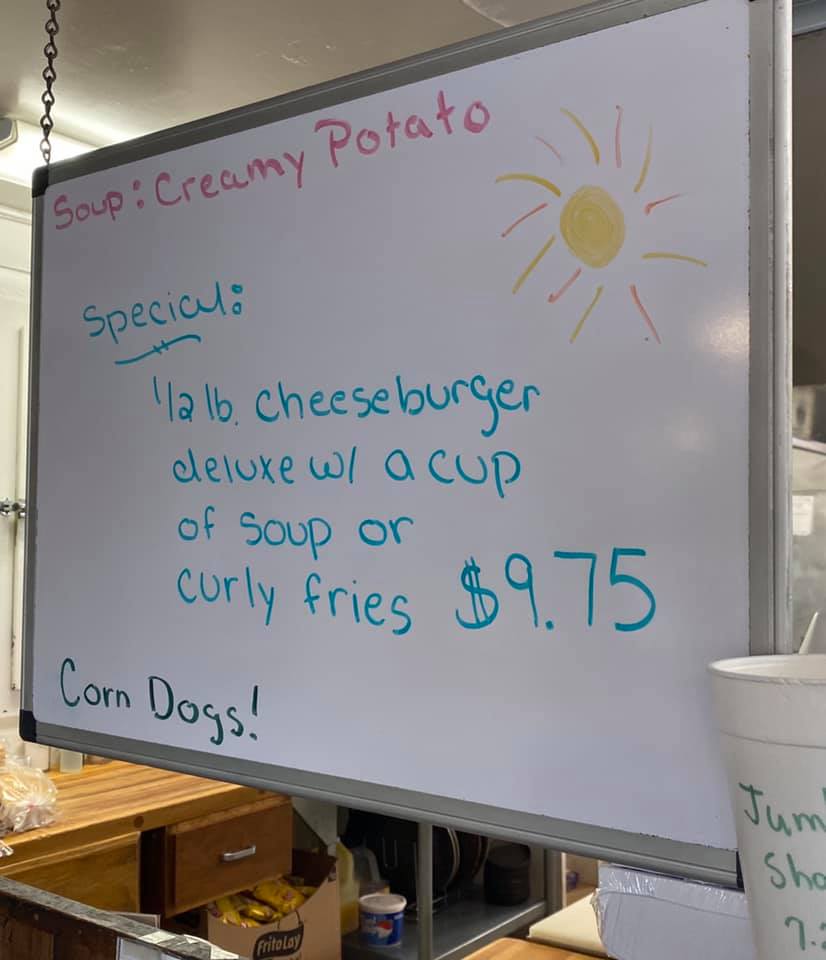 Soup: Creamy Potato
Special:
1/2 lb. cheeseburger
deluxe w/ a cup
of soup or
curly fries $9.75
Corn Dogs!
Frito Lay